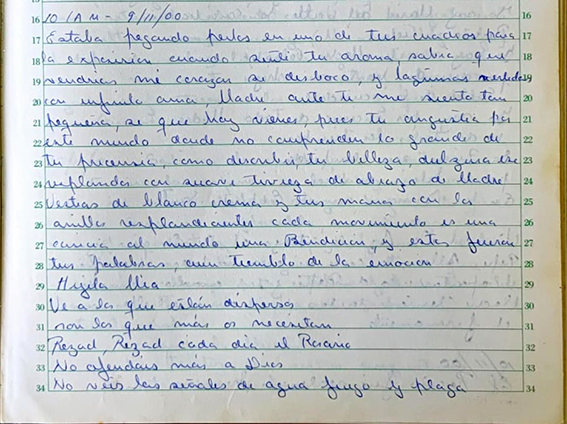 15
16 10/AM - 9/11/00 16
17 Estaba pegando perlas en uno de tus cuadros para 17
18 la exposicion cuando senti tu aroma, sabia que 18
19 vendrias mi corazon se desboco, y lagrimas vertidas 19
20 con infinito amor, Madre ante ti me siento tan 20
21 pequeña, se que hoy vienes pues tu angustia por 21
22 este mundo donde no comprenden lo grande de 22
23 tu precensia, como describir tu belleza, dulzura ese 23
24 resplandor con suave tivieza de abrazo de Madre 24
25 vestias de blanco crema y tus manos con los 25
26 anillos resplandicientes cada movimiento es una 26
27 caricia al mundo una Bendicion, y estas fueron 27
28 tus palabras, aun tiemblo de la emocion 28
29 Hijita Mia 29
30 Ve a los que están dispersos 30
31 son los que más os necesitan 31
32 Rezad, Rezad cada dia el Rosario 32
33 No ofendáis más a Dios 33
34 No véis las señales de agua fuego y plaga 34